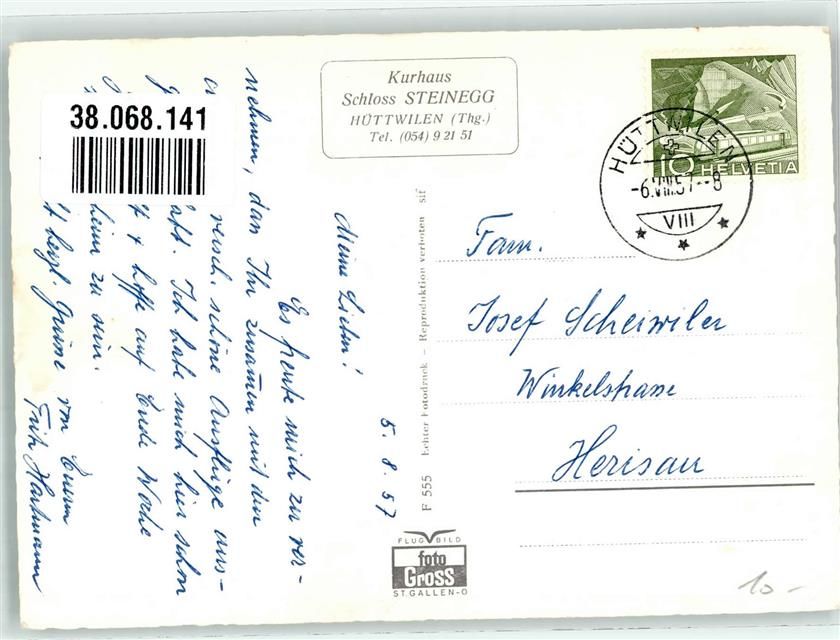 38.068.141
Kurhaus
Schloss STEINEGG
HÜTTWILEN (Thg.)
Tel. (054) 9 21 51
HÜTTWILEN
-6.VIII.57--8
VIII
10 HELVETIA
5.8.57
Meine Lieben!
Es freute mich zu ver-
nehmen, dass Ihr zusammen mit den
versch. schöne Ausflüge aus-
Ich habe mich hier schon
& hoffe auf Ende Woche
heim zu sein.
herzl. Grüsse von Eurem
Fritz Hartmann
F 555 Echter Fotodruck — Reproduktion verboten sif
Fam.
Josef Scheiwiler
Winkelstrasse
Herisau
FLUGBILD
foto
Gross
ST. GALLEN-O
10.-